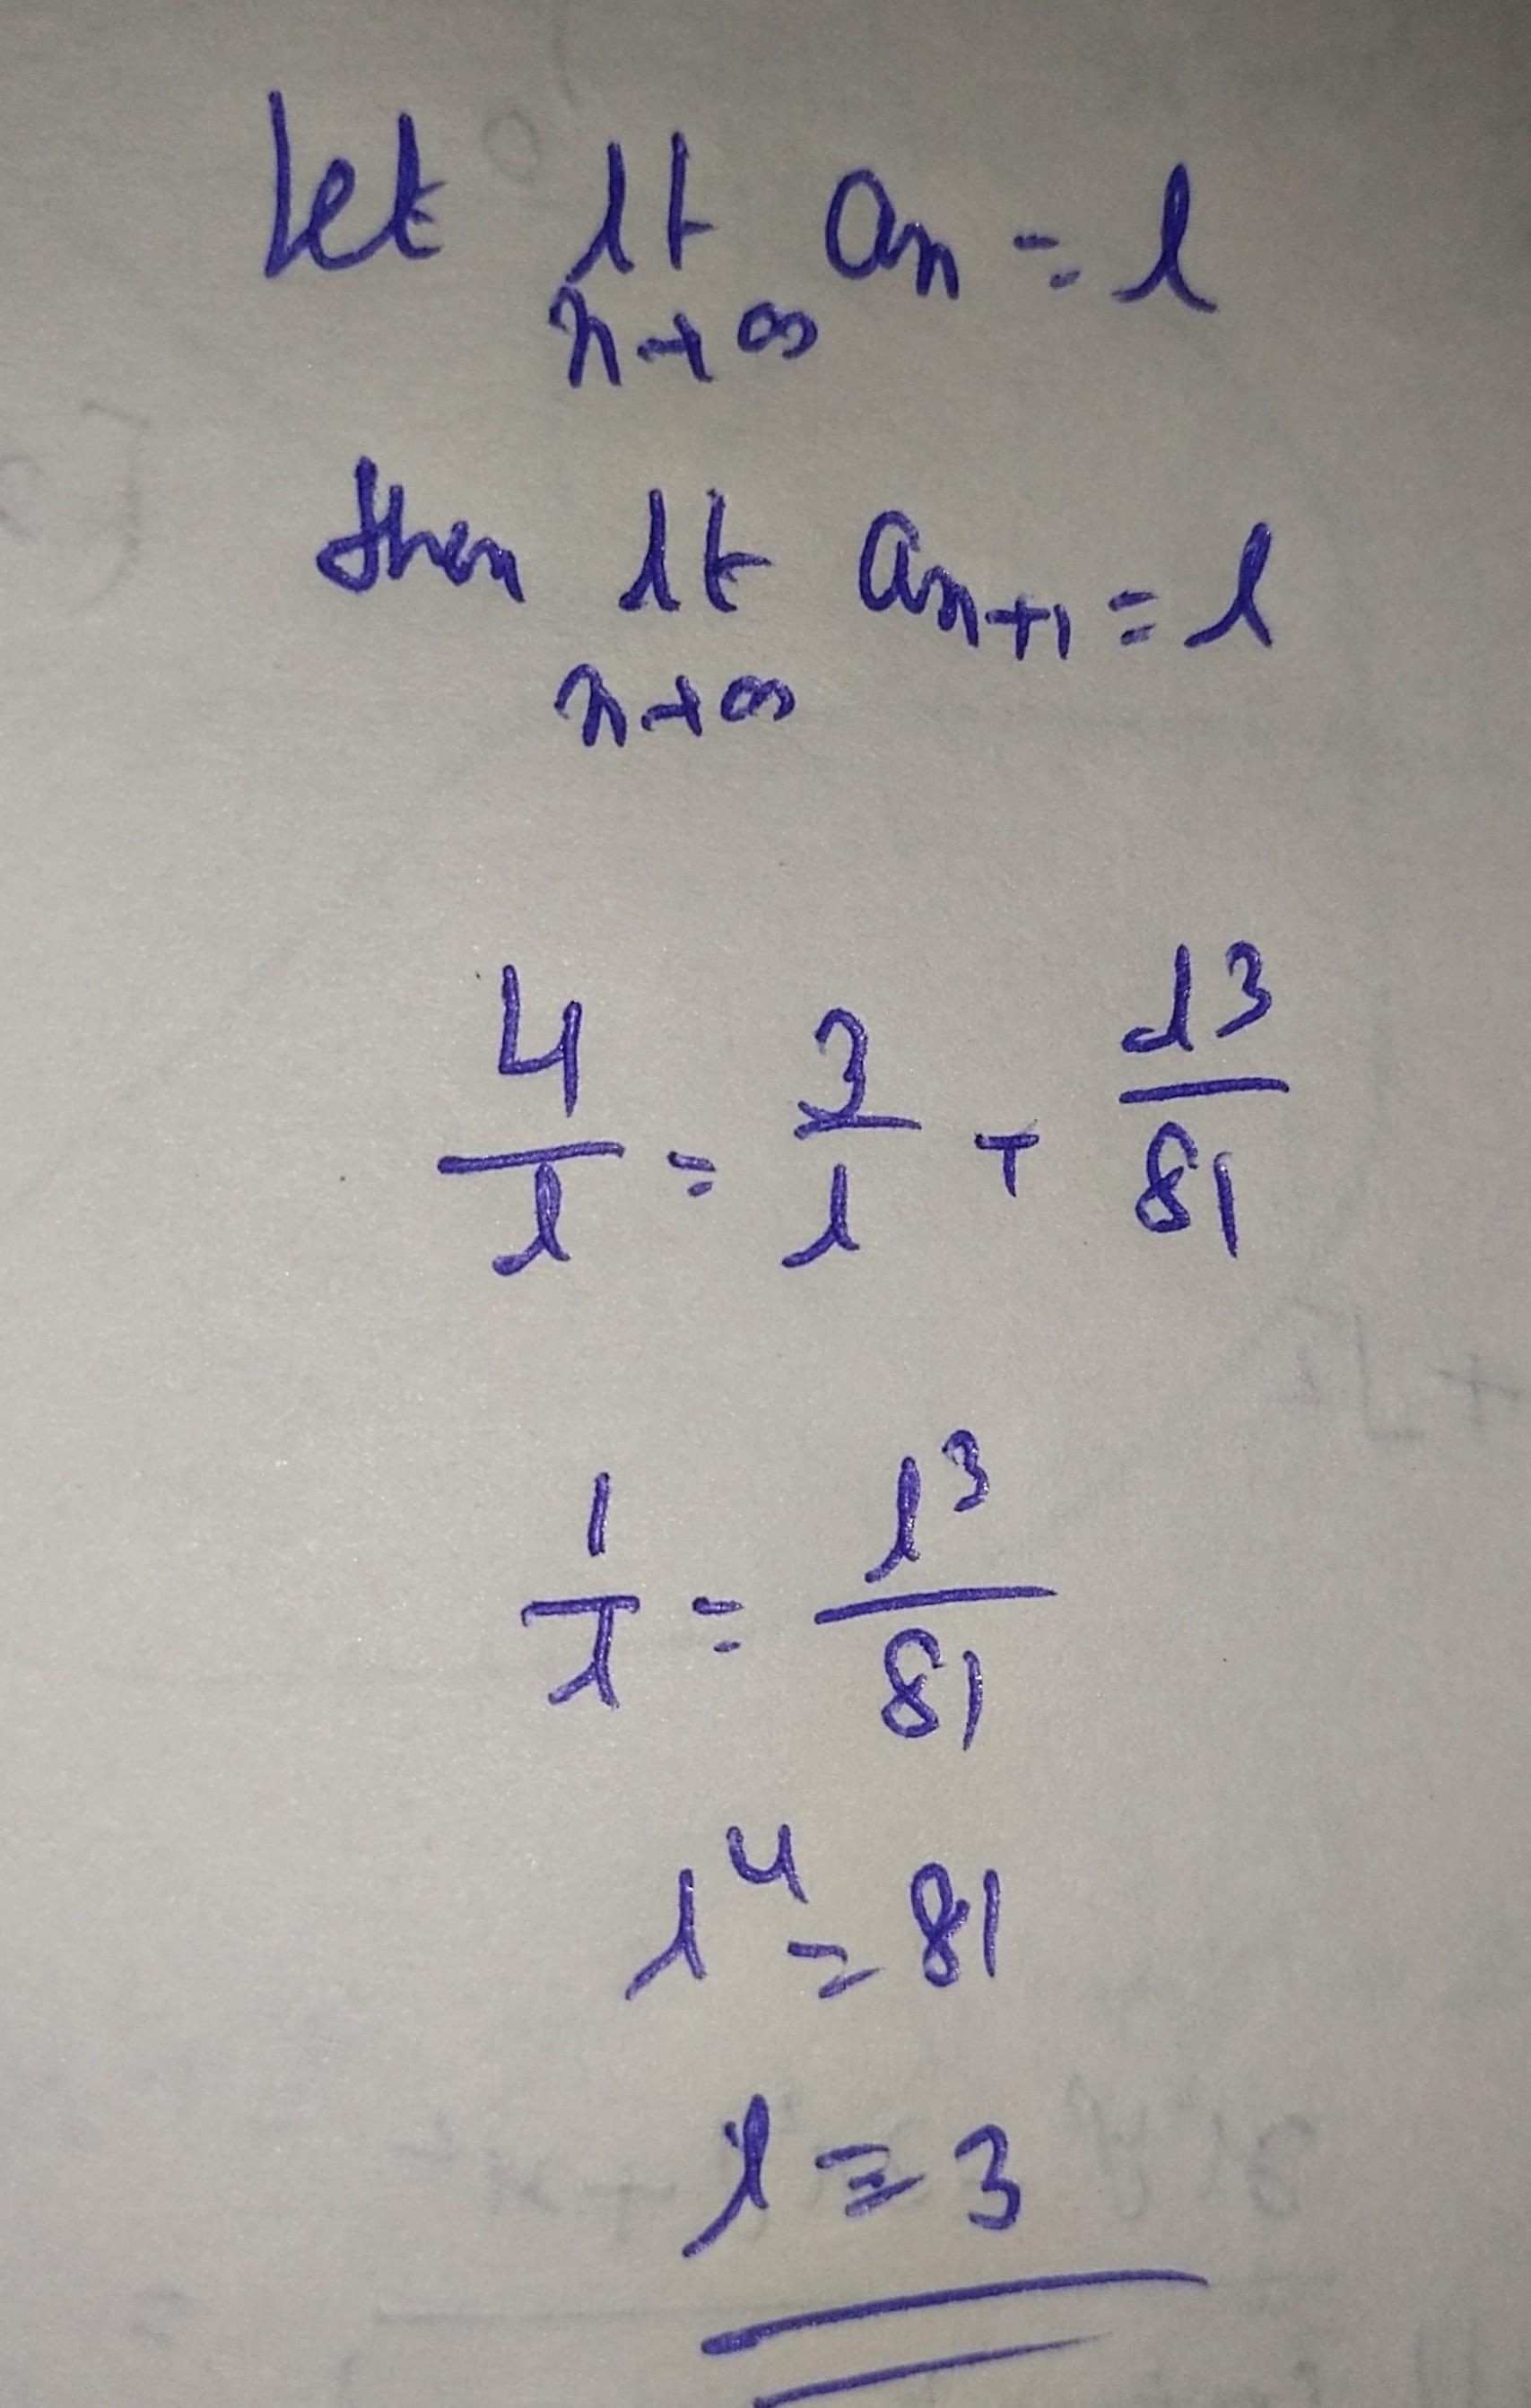 Let lt an = l
n→∞
then lt an+1 = l
n→∞
4/l = 3/l + l³/81
1/l = l³/81
l⁴ = 81
l = 3